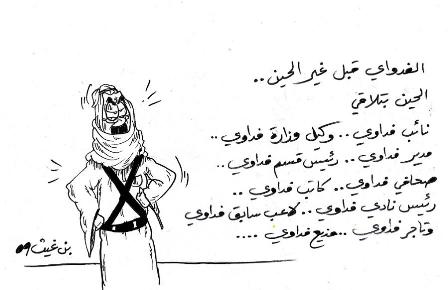 الفداوي قبل غير الحين..
الحين بتلاقي
نائب فداوي.. وكيل وزارة فداوي..
مدير فداوي.. رئيس قسم فداوي..
صحافي فداوي.. كاتب فداوي..
رئيس نادي فداوي.. لاعب سابق فداوي
وتاجر فداوي.. مذيع فداوي ....
بن غيث 09